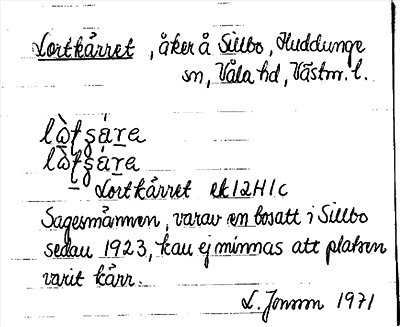 Lortkärret, åker å Sillbo, Huddunge
sn, Våla hd, Västm. l.
Lortkärret ek 12H1c
Sagesmännen, varav en bosatt i Sillbo
sedan 1923, kan ej minnas att platsen
varit kärr.
L. Jonson 1971